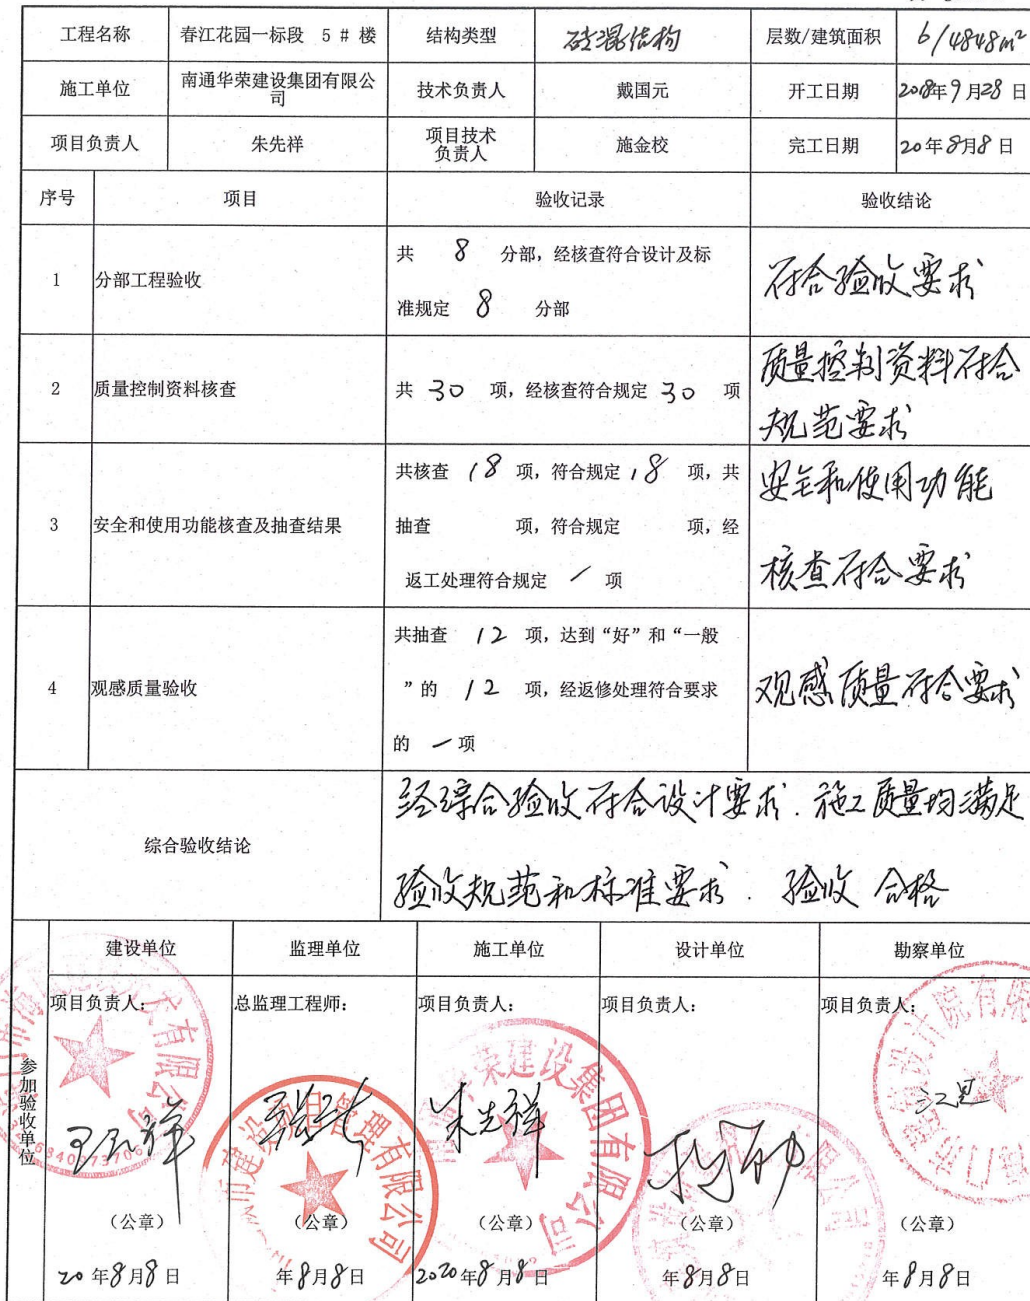 工程名称 春江花园一标段 5 # 楼 结构类型 砖混结构 层数/建筑面积 6/4848m²
施工单位 南通华荣建设集团有限公司 技术负责人 戴国元 开工日期 2018年9月28日
项目负责人 朱先祥 项目技术负责人 施金校 完工日期 20年8月8日
序号 项目 验收记录 验收结论
1 分部工程验收
共 8 分部，经核查符合设计及标
准规定 8 分部
符合验收要求
2 质量控制资料核查
共 30 项，经核查符合规定 30 项
质量控制资料符合
规范要求
3 安全和使用功能核查及抽查结果
共核查 18 项，符合规定 18 项，共
抽查 项，符合规定 项，经
返工处理符合规定 / 项
安全和使用功能
核查符合要求
4 观感质量验收
共抽查 12 项，达到“好”和“一般
”的 12 项，经返修处理符合要求
的 / 项
观感质量符合要求
综合验收结论
经综合验收符合设计要求．施工质量均满足
验收规范和标准要求．验收 合格
参加验收单位
建设单位 监理单位 施工单位 设计单位 勘察单位
项目负责人： 总监理工程师： 项目负责人： 项目负责人： 项目负责人：
朱先祥
（公章） （公章） （公章） （公章） （公章）
20年8月8日 年8月8日 2020年8月8日 年8月8日 年8月8日
有限公司
管理有限公司
荣建设集团有限公司
设计院有限